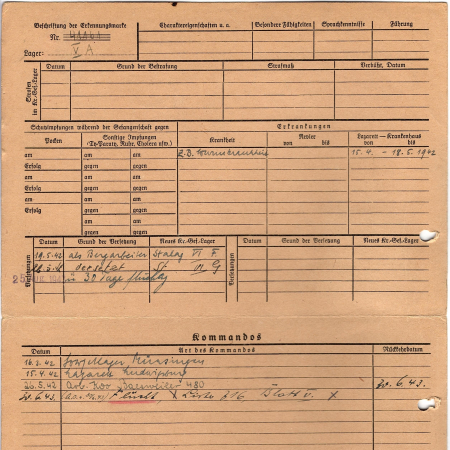 Beschriftung der Erkennungsmarke
Charaktereigenschaften u. a.
Besondere Fähigkeiten
Sprachkenntnisse
Führung
Nr.
Lager: V A
Strafen im Kr.-Gef.-Lager
Datum
Grund der Bestrafung
Strafmaß
Verbüßt, Datum
Schutzimpfungen während der Gefangenschaft gegen
Erkrankungen
Pocken
Sonstige Impfungen (Ty-Paraty, Ruhr, Cholera usw.)
Krankheit
Revier von bis
Lazarett — Krankenhaus von bis
am am am
15.4. - 18.5. 1942
Erfolg gegen gegen
am am am
Erfolg gegen gegen
am am am
Erfolg gegen gegen
am am
gegen gegen
Versetzungen
Datum
Grund der Versetzung
Neues Kr.-Gef.-Lager
Versetzungen
Datum
Grund der Versetzung
Neues Kr.-Gef.-Lager
19.5.42 als Bergarbeiter Stalag VI F.
versetzt St. VI G
30 Tage
Kommandos
Datum
Art des Kommandos
Rückkehrdatum
16.2.42
15.4.42 Lazarett Ludwigsburg
26.5.42 Arb. Kdo 480